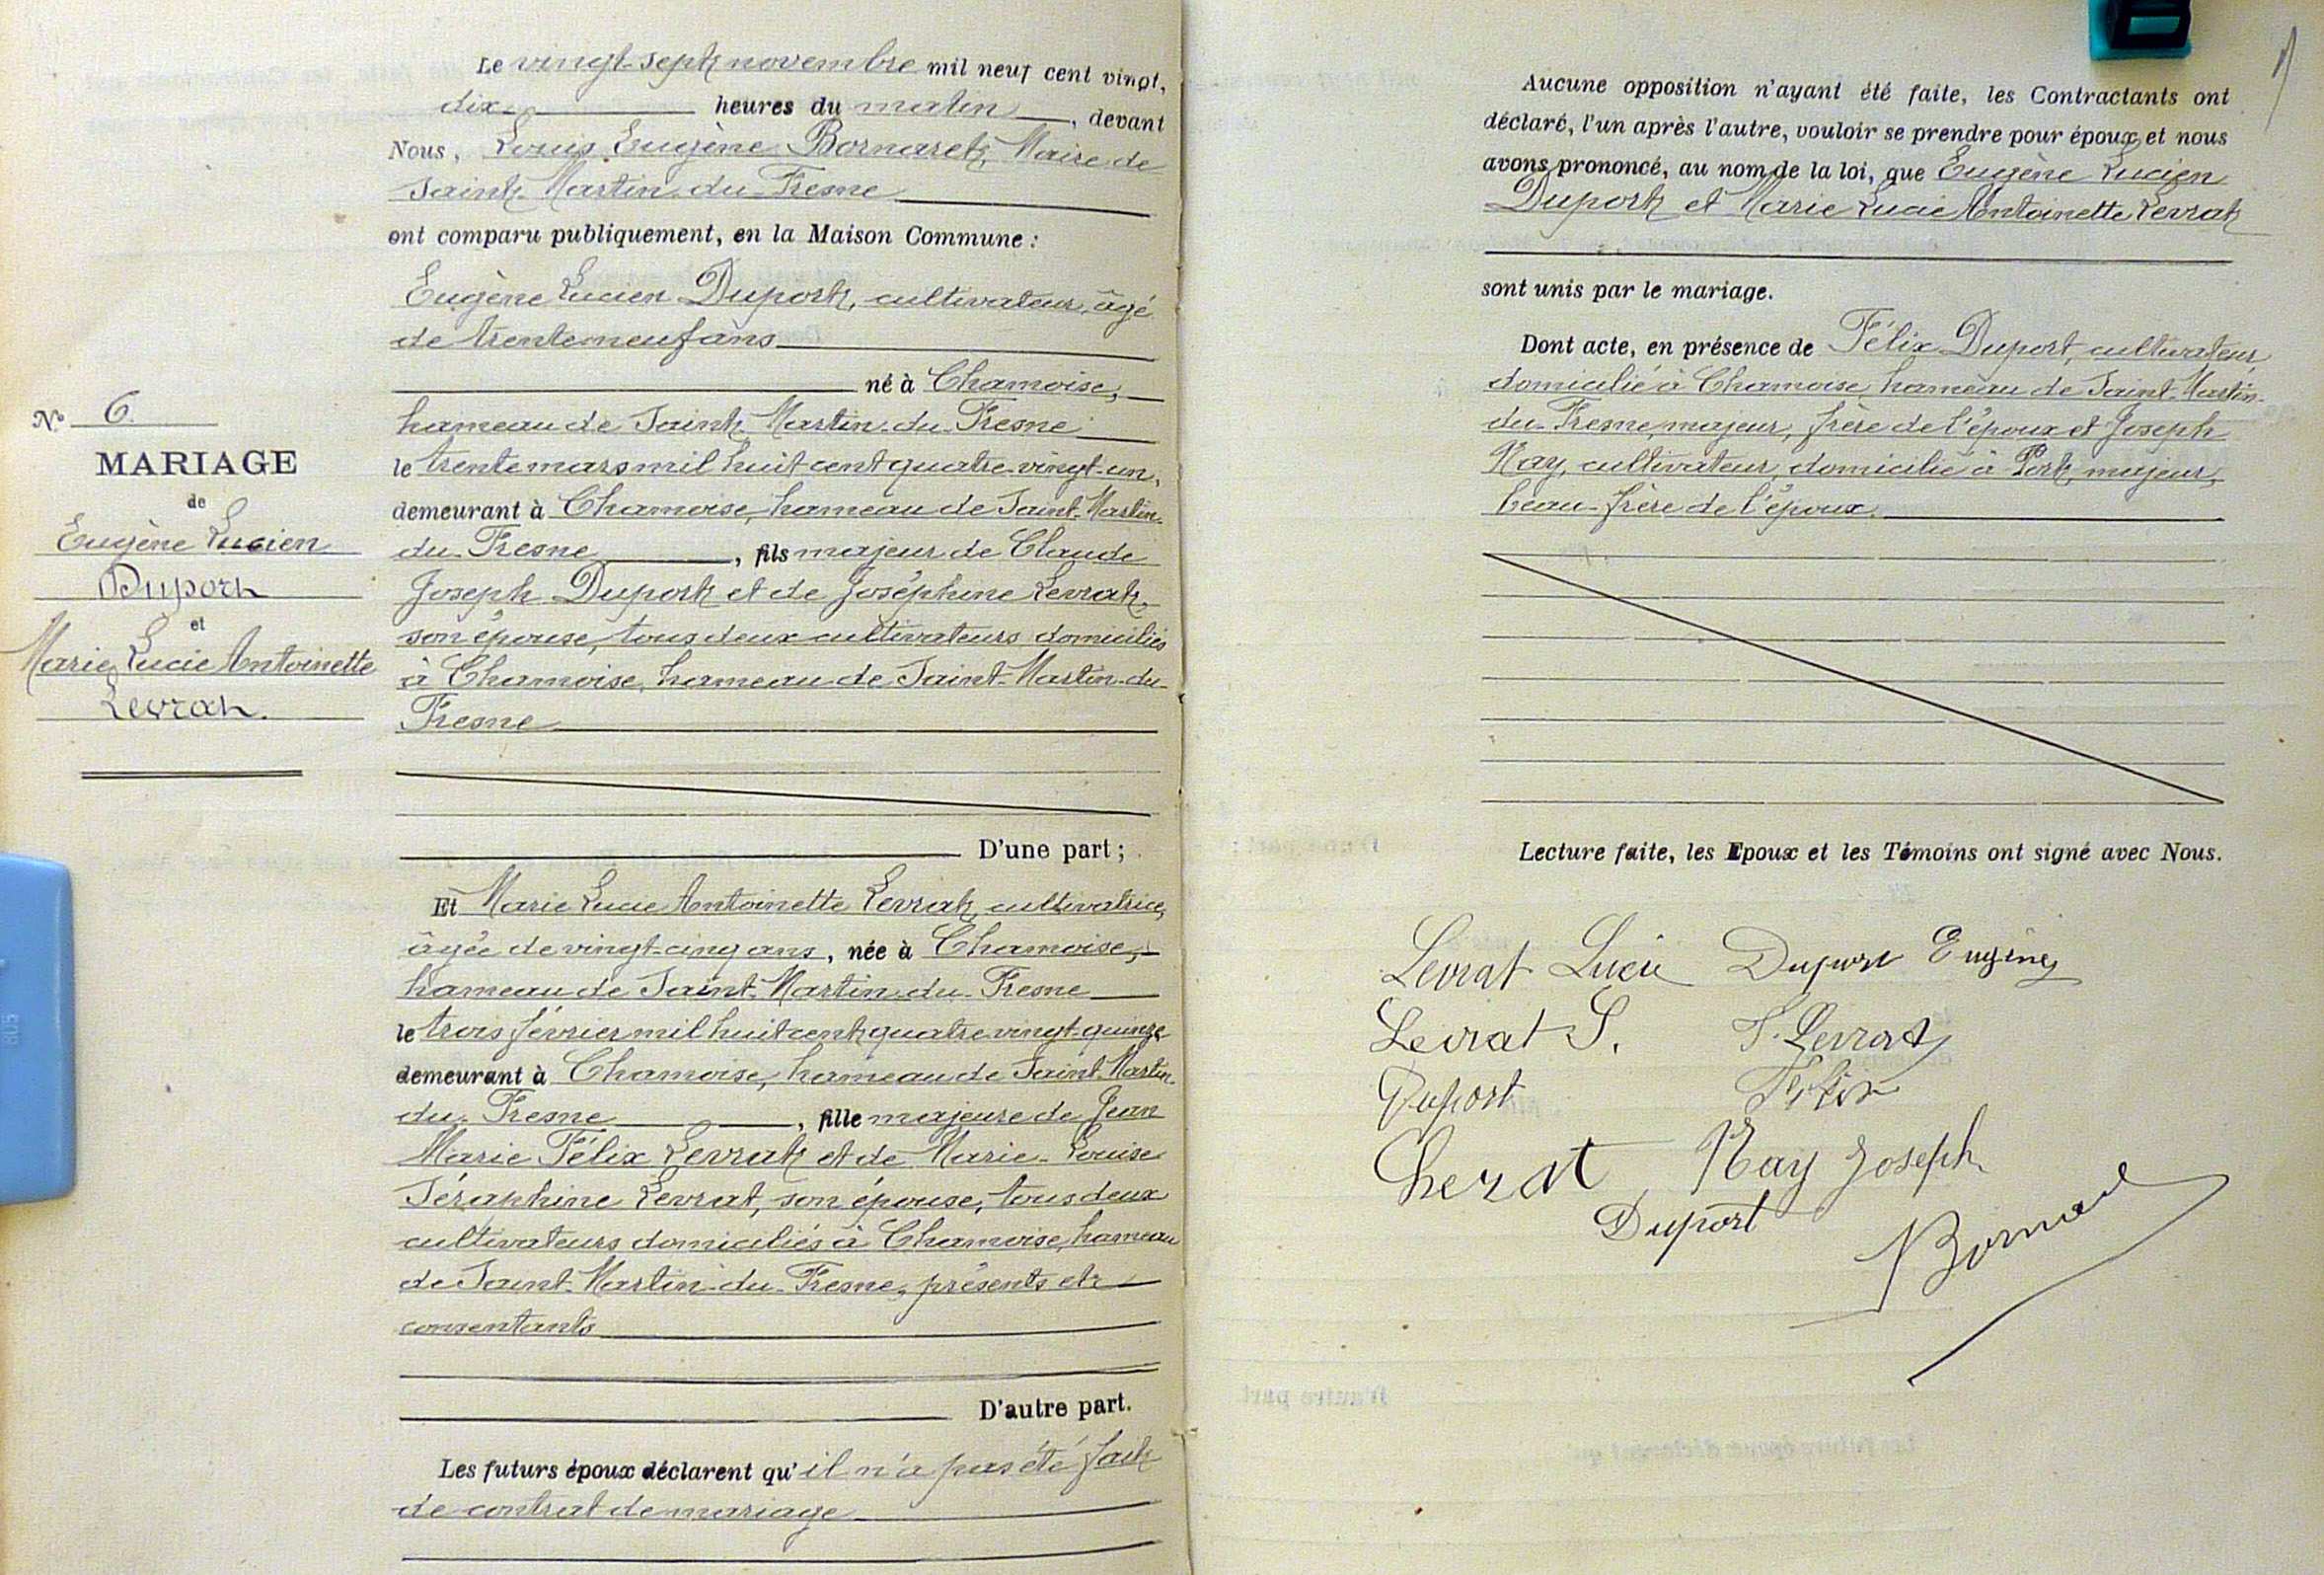 Le vingt-sept novembre mil neuf cent vingt,
dix heures du matin, devant
Nous, Louis Eugène Bornaret, Maire de
Saint-Martin-du-Fresne
ont comparu publiquement, en la Maison Commune :
Eugène Lucien Duport, cultivateur, âgé
de trente neuf ans
né à Chamoise,
hameau de Saint-Martin-du-Fresne
le trente mars mil huit cent quatre-vingt-un,
demeurant à Chamoise, hameau de Saint-Martin-
du-Fresne, fils majeur de Claude
Joseph Duport et de Joséphine Levrat,
son épouse, tous deux cultivateurs domiciliés
à Chamoise, hameau de Saint-Martin-du-
Fresne
D'une part ;
Et Marie Lucie Antoinette Levrat, cultivatrice,
âgée de vingt-cinq ans, née à Chamoise,
hameau de Saint-Martin-du-Fresne
le trois février mil huit cent quatre vingt-quinze
demeurant à Chamoise, hameau de Saint-Martin-
du-Fresne, fille majeure de Jean
Marie Félix Levrat et de Marie-Louise
Séraphine Levrat, son épouse, tous deux
cultivateurs domiciliés à Chamoise, hameau
de Saint-Martin-du-Fresne, présents et
consentants
D'autre part.
Les futurs époux déclarent qu'il n'a pas été fait
de contrat de mariage
No 6
MARIAGE
de
Eugène Lucien
Duport
et
Marie Lucie Antoinette
Levrat.
Aucune opposition n'ayant été faite, les Contractants ont
déclaré, l'un après l'autre, vouloir se prendre pour époux et nous
avons prononcé, au nom de la loi, que Eugène Lucien
Duport et Marie Lucie Antoinette Levrat
sont unis par le mariage.
Dont acte, en présence de Félix Duport, cultivateur,
domicilié à Chamoise, hameau de Saint-Martin-
du-Fresne, majeur, frère de l'époux et Joseph
Nay, cultivateur, domicilié à Port, majeur,
beau-frère de l'époux.
Lecture faite, les Epoux et les Témoins ont signé avec Nous.
Levrat Lucie Duport Eugène
Levrat S. F. Levrat
Duport Félix
Cherat Nay Joseph
Duport